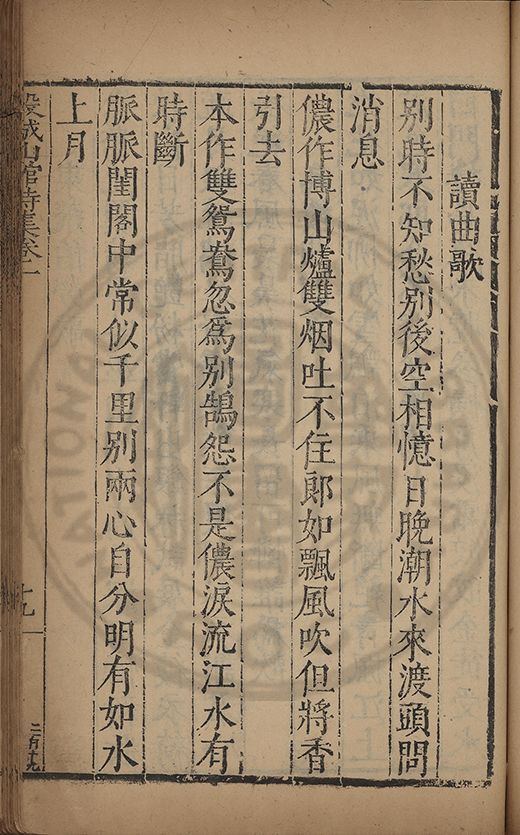 讀曲歌
別時不知愁別後空相憶日晚潮水來渡頭問
消息
儂作博山爐雙烟吐不住郎如飄風吹但將香
引去
本作雙鴛鴦忽爲別鵠怨不是儂淚流江水有
時斷
脈脈閨閣中常似千里別兩心自分明有如水
上月
穀城山館詩集卷一